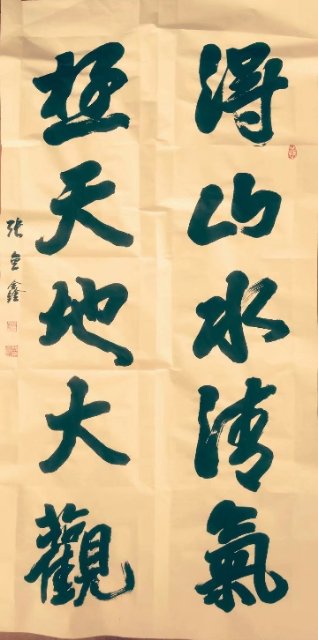 得山水清氣
極天地大觀
張金鑫